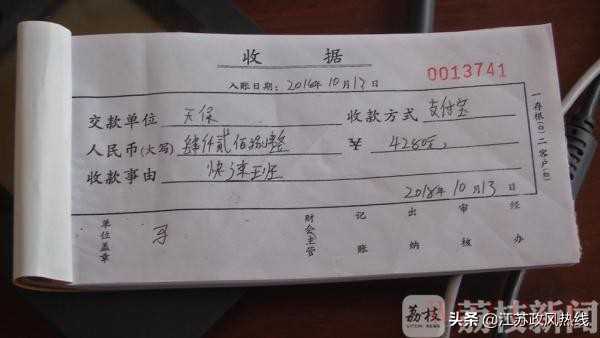 收 据
入账日期：2016年10月13日
0013741
交款单位 天保 收款方式 支付宝
人民币(大写) 肆仟贰佰捌拾整 ¥ 4280元
收款事由 快速班
2018年10月13日
单位盖章 财会主管 记账 出纳 审核 经办
一存根 二客户
荔枝
荔枝新闻
头条 @江苏政风热线